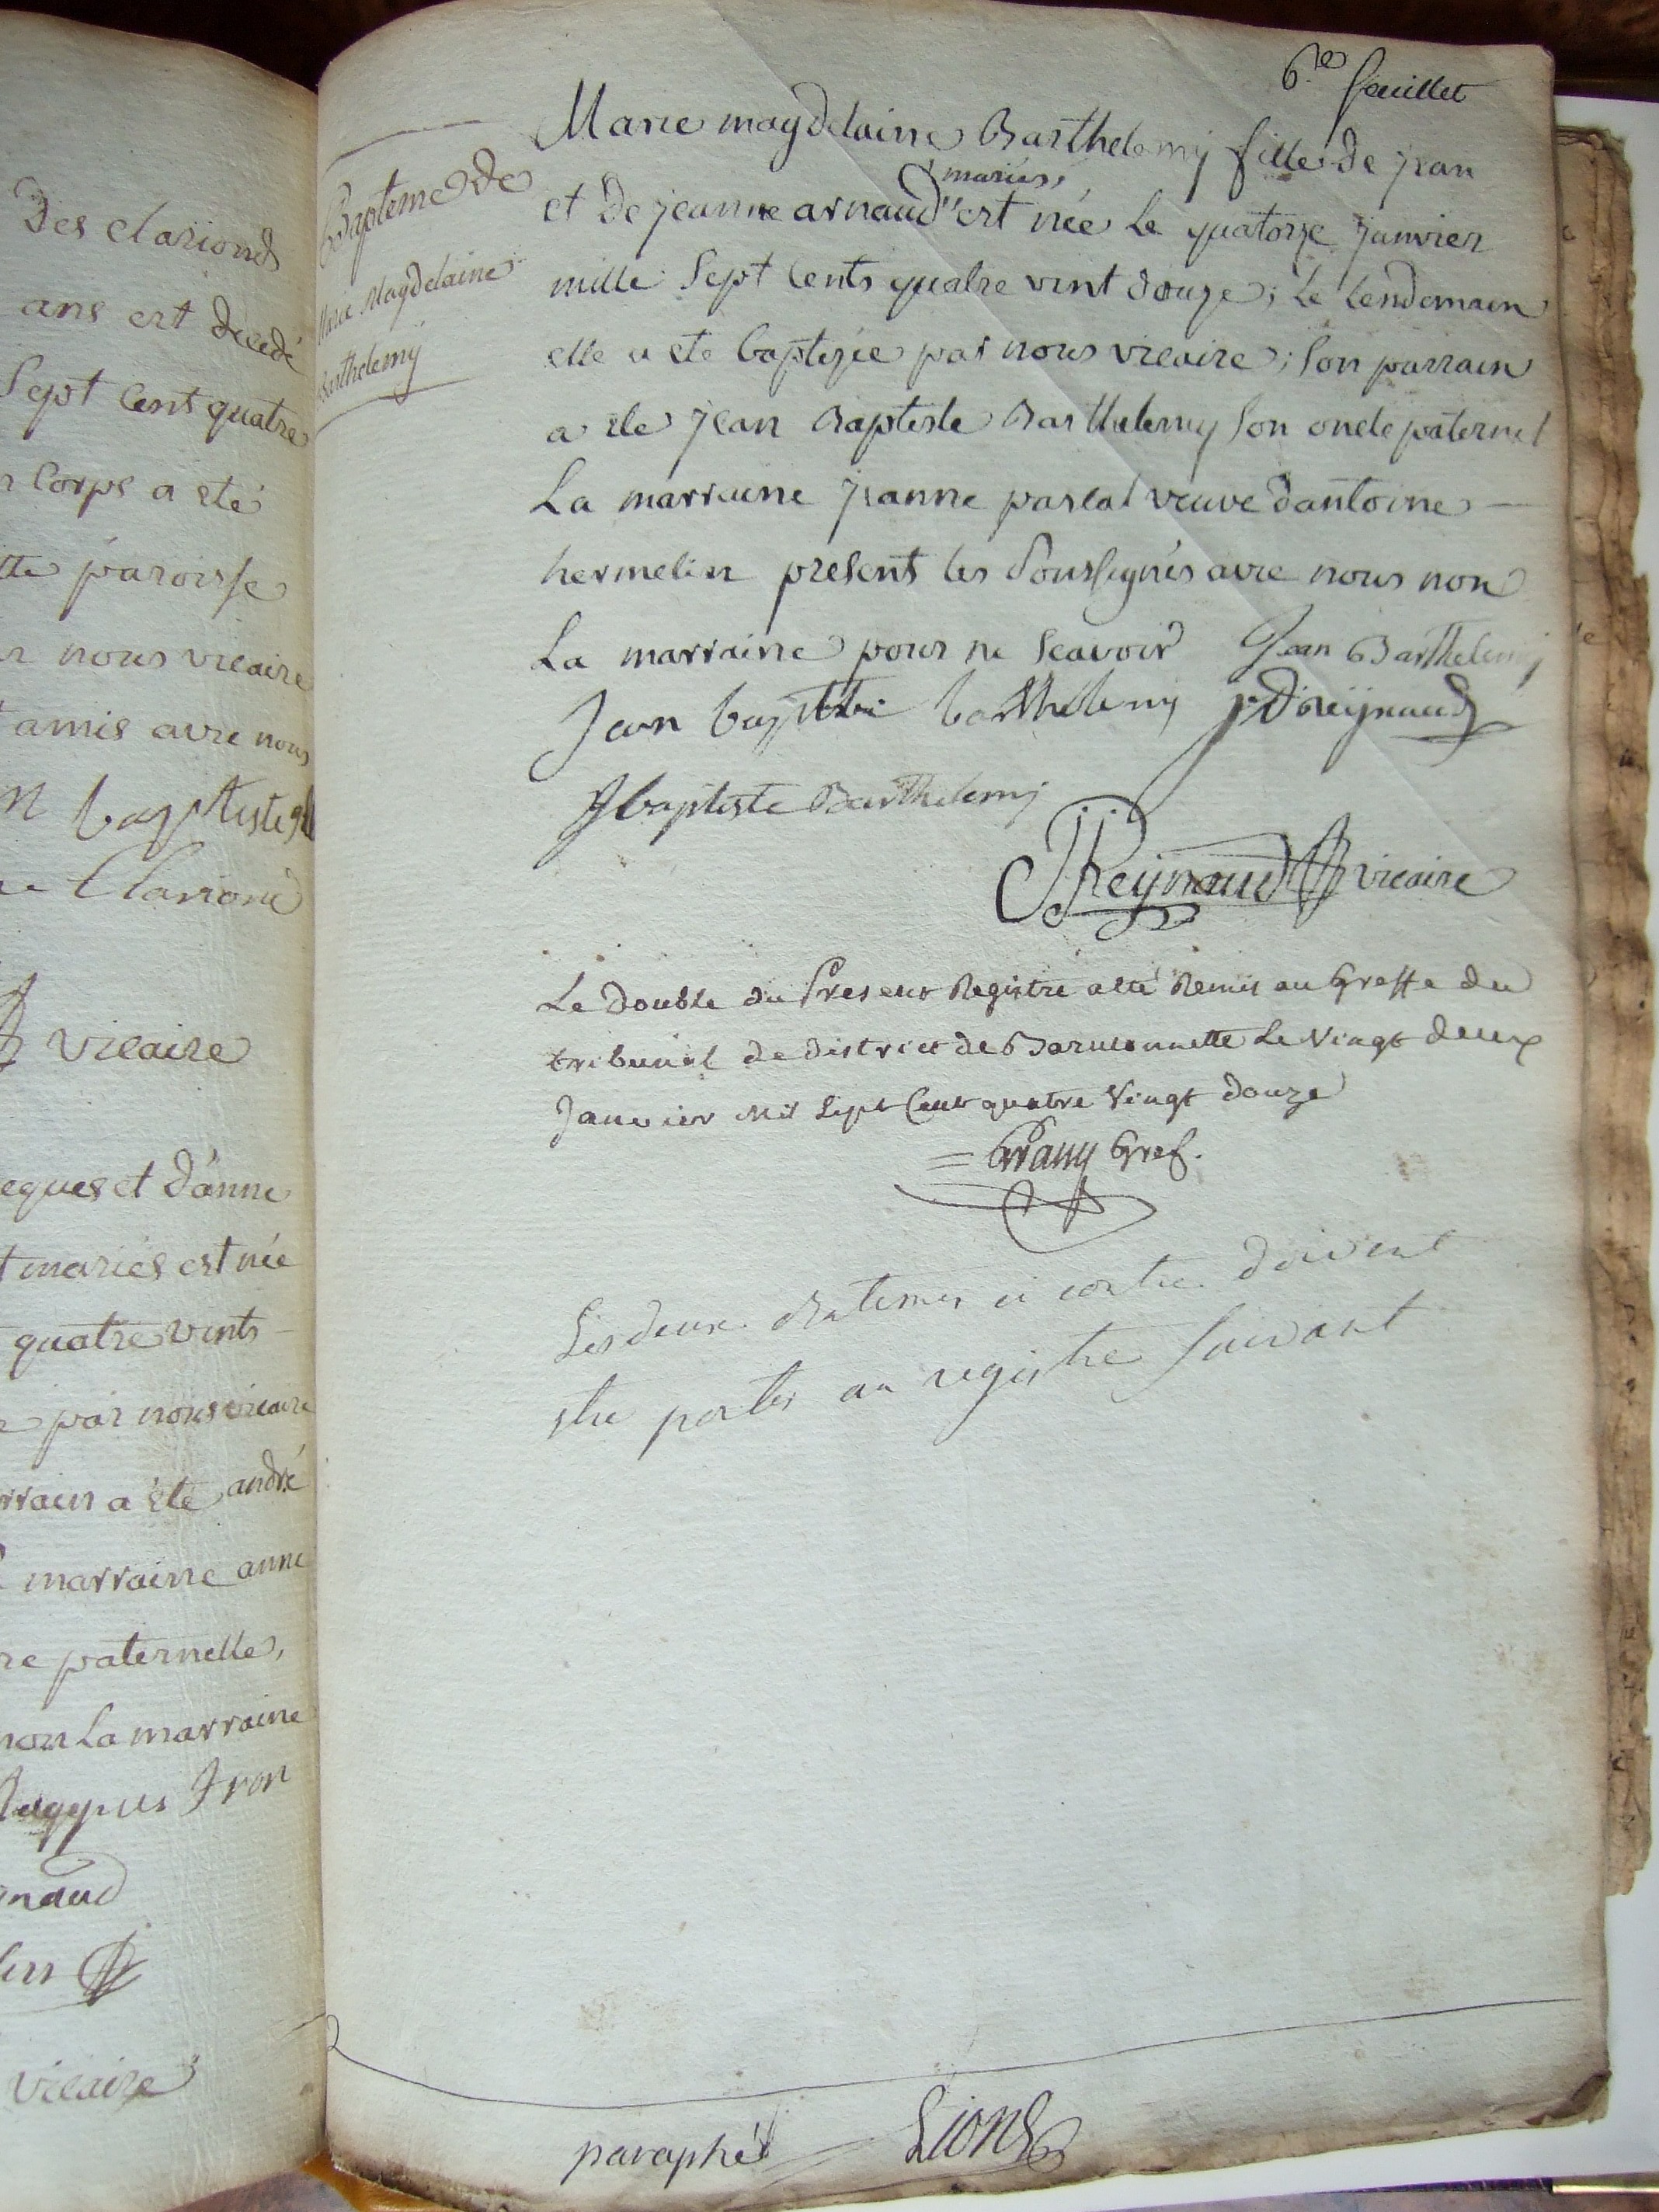 Des clarionds
ans est decedé
Sept Cent quatre
Corps a eté
paroisse
nous vicaire
amis avec nous
baptiste
Clariond
vicaire
et d'anne
mariés est née
quatre vints
par nous vicaire
a été andré
marraine anne
paternelle,
non La marraine
vicaire
6.e feuillet
Bapteme de
Marie Magdelaine
Barthelemÿ
Marie magdelaine Barthelemÿ fille de jean
mariés,
et De jeanne arnaud " est née Le quatorze janvier
mille Sept Cents quatre vint douze; Le Lendemain
elle a ete baptizée par nous vicaire; Son parrain
a ete jean Baptiste Barthelemy Son oncle paternel
La marraine jeanne pascal veuve d'antoine
hermelin presents les Soussignés avec nous non
La marraine pour ne Scavoir Jean Barthelemy
Jean baptiste barthelemy j Dreÿnaud
J baptiste Barthelemy
JReÿnaud vicaire
Le Double du Present Registre a eté Remis au Greffe du
tribunal de District de Barcelonnette Le Vingt deux
Janvier Mil Sept Cent quatre Vingt douze
Gref.
Les deux Batemes ci contre doivent
etre portés au registre Suivant
paraphé Lions